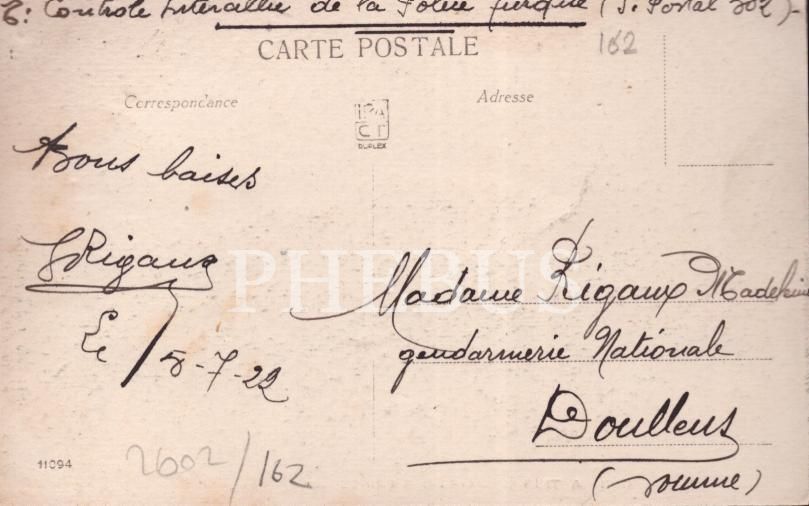 E: Controle Interallié de la Police Turque (S. Postal 502)-
CARTE POSTALE
162
Correspondance
Adresse
IPA
CT
DUPLEX
Bons baises
Rigaux
Le 5-7-22
PHEBUS
Madame Rigaux
gendarmerie Nationale
Doullens
(Somme)
11094
2602/162